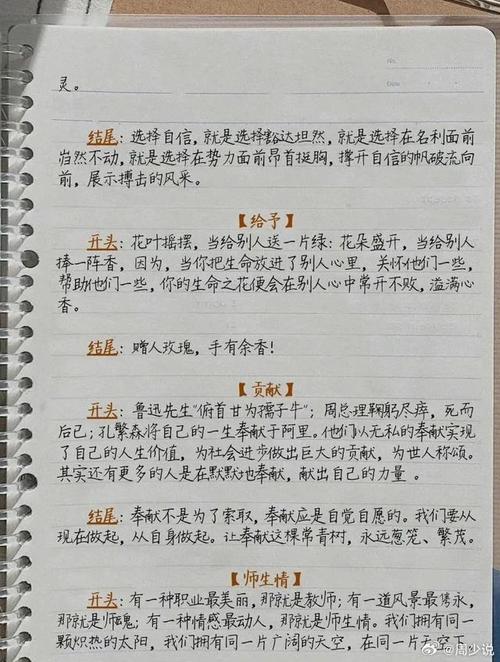 No.
Date
灵。
结尾：选择自信，就是选择豁达坦然，就是选择在名利面前
岿然不动，就是选择在势力面前昂首挺胸，撑开自信的帆破流向
前，展示搏击的风采。
【给予】
开头：花叶摇摆，当给别人送一片绿；花朵盛开，当给别人
捧一阵香，因为，当你把生命放进了别人心里，关怀他们一些，
帮助他们一些，你的生命之花便会在别人心中常开不败，溢满心
香。
结尾：赠人玫瑰，手有余香！
【贡献】
开头：鲁迅先生“俯首甘为孺子牛”；周总理鞠躬尽瘁，死而
后已；孔繁森将自己的一生奉献于阿里。他们以无私的奉献实现
了自己的人生价值，为社会进步做出巨大的贡献，为世人称颂。
其实还有更多的人是在默默地奉献，献出自己的力量。
结尾：奉献不是为了索取，奉献应是自觉自愿的。我们要从
现在做起，从自身做起。让奉献这棵常青树，永远葱笼、繁茂。
【师生情】
开头：有一种职业最美丽，那就是教师；有一道风景最隽永，
那就是师魂；有一种情感最动人，那就是师生情。我们拥有同一
颗炽热的太阳，我们拥有同一片广阔的天空，在同一片天空下
@周少说